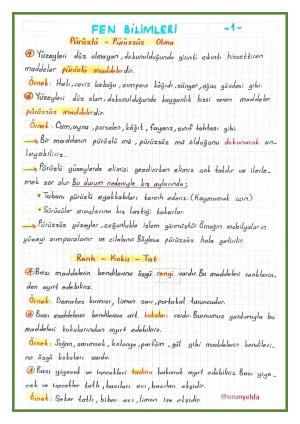 FEN BİLİMLERİ -1-
Pürüzlü - Pürüzsüz Olma
Yüzeyleri düz olmayan, dokunulduğunda girinti çıkıntı hissettiren
maddeler pürüzlü maddelerdir.
Örnek: Halı, ceviz kabuğu, zımpara kâğıdı, sünger, ağaç gövdesi gibi.
Yüzeyleri düz olan, dokunulduğunda kayganlık hissi veren maddeler
pürüzsüz maddelerdir.
Örnek: Cam, ayna, porselen, kâğıt, fayans, sınıf tahtası gibi.
→ Bir maddenin pürüzlü mü, pürüzsüz mü olduğunu dokunarak an-
layabiliriz.
→ Pürüzlü yüzeylerde elimizi gezdirirken elimiz çok takılır ve ilerle-
mek zor olur. Bu durum nedeniyle kış aylarında;
• Tabanı pürüzlü ayakkabıları tercih ederiz. (Kaymamak için)
• Sürücüler araçlarına kış lastiği takarlar.
→ Pürüzsüz yüzeyler, çoğunlukla işlem görmüştür. Örneğin mobilyaların
yüzeyi zımparalanır ve cilalanır. Böylece pürüzsüz hale getirilir.
Renk - Koku - Tat
Bazı maddelerin kendilerine özgü rengi vardır. Bu maddeleri renklerin-
den ayırt edebiliriz.
Örnek: Domates kırmızı, limon sarı, portakal turuncudur.
Bazı maddelerin kendilerine ait kokuları vardır. Burnumuz yardımıyla bu
maddeleri kokularından ayırt edebiliriz.
Örnek: Soğan, sarımsak, kolonya, parfüm, gül gibi maddelerin kendileri-
ne özgü kokuları vardır.
Bazı yiyecek ve içecekleri tadına bakarak ayırt edebiliriz. Bazı yiye-
cek ve içecekler tatlı, bazıları acı, bazıları ekşidir.
Örnek: Şeker tatlı, biber acı, limon ise ekşidir.